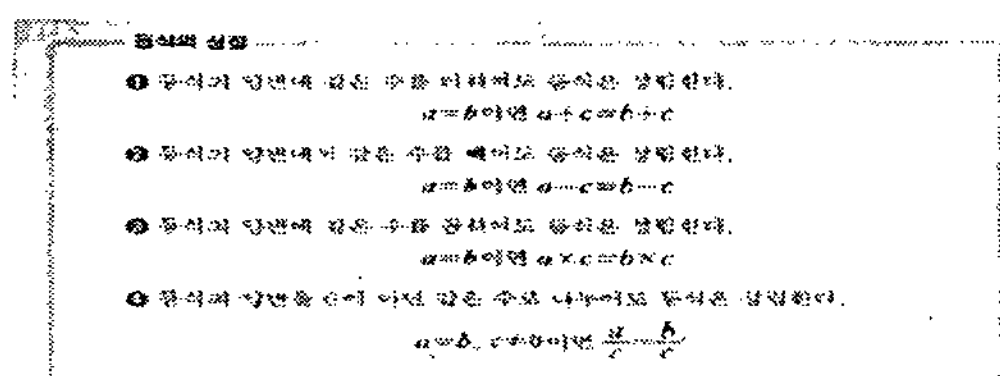 등식의 성질
❶ 등식의 양변에 같은 수를 더하여도 등식은 성립한다.
a=b이면 a+c=b+c
❷ 등식의 양변에서 같은 수를 빼어도 등식은 성립한다.
a=b이면 a-c=b-c
❸ 등식의 양변에 같은 수를 곱하여도 등식은 성립한다.
a=b이면 a×c=b×c
❹ 등식의 양변을 0이 아닌 같은 수로 나누어도 등식은 성립한다.
a=b, c≠0이면 a/c=b/c